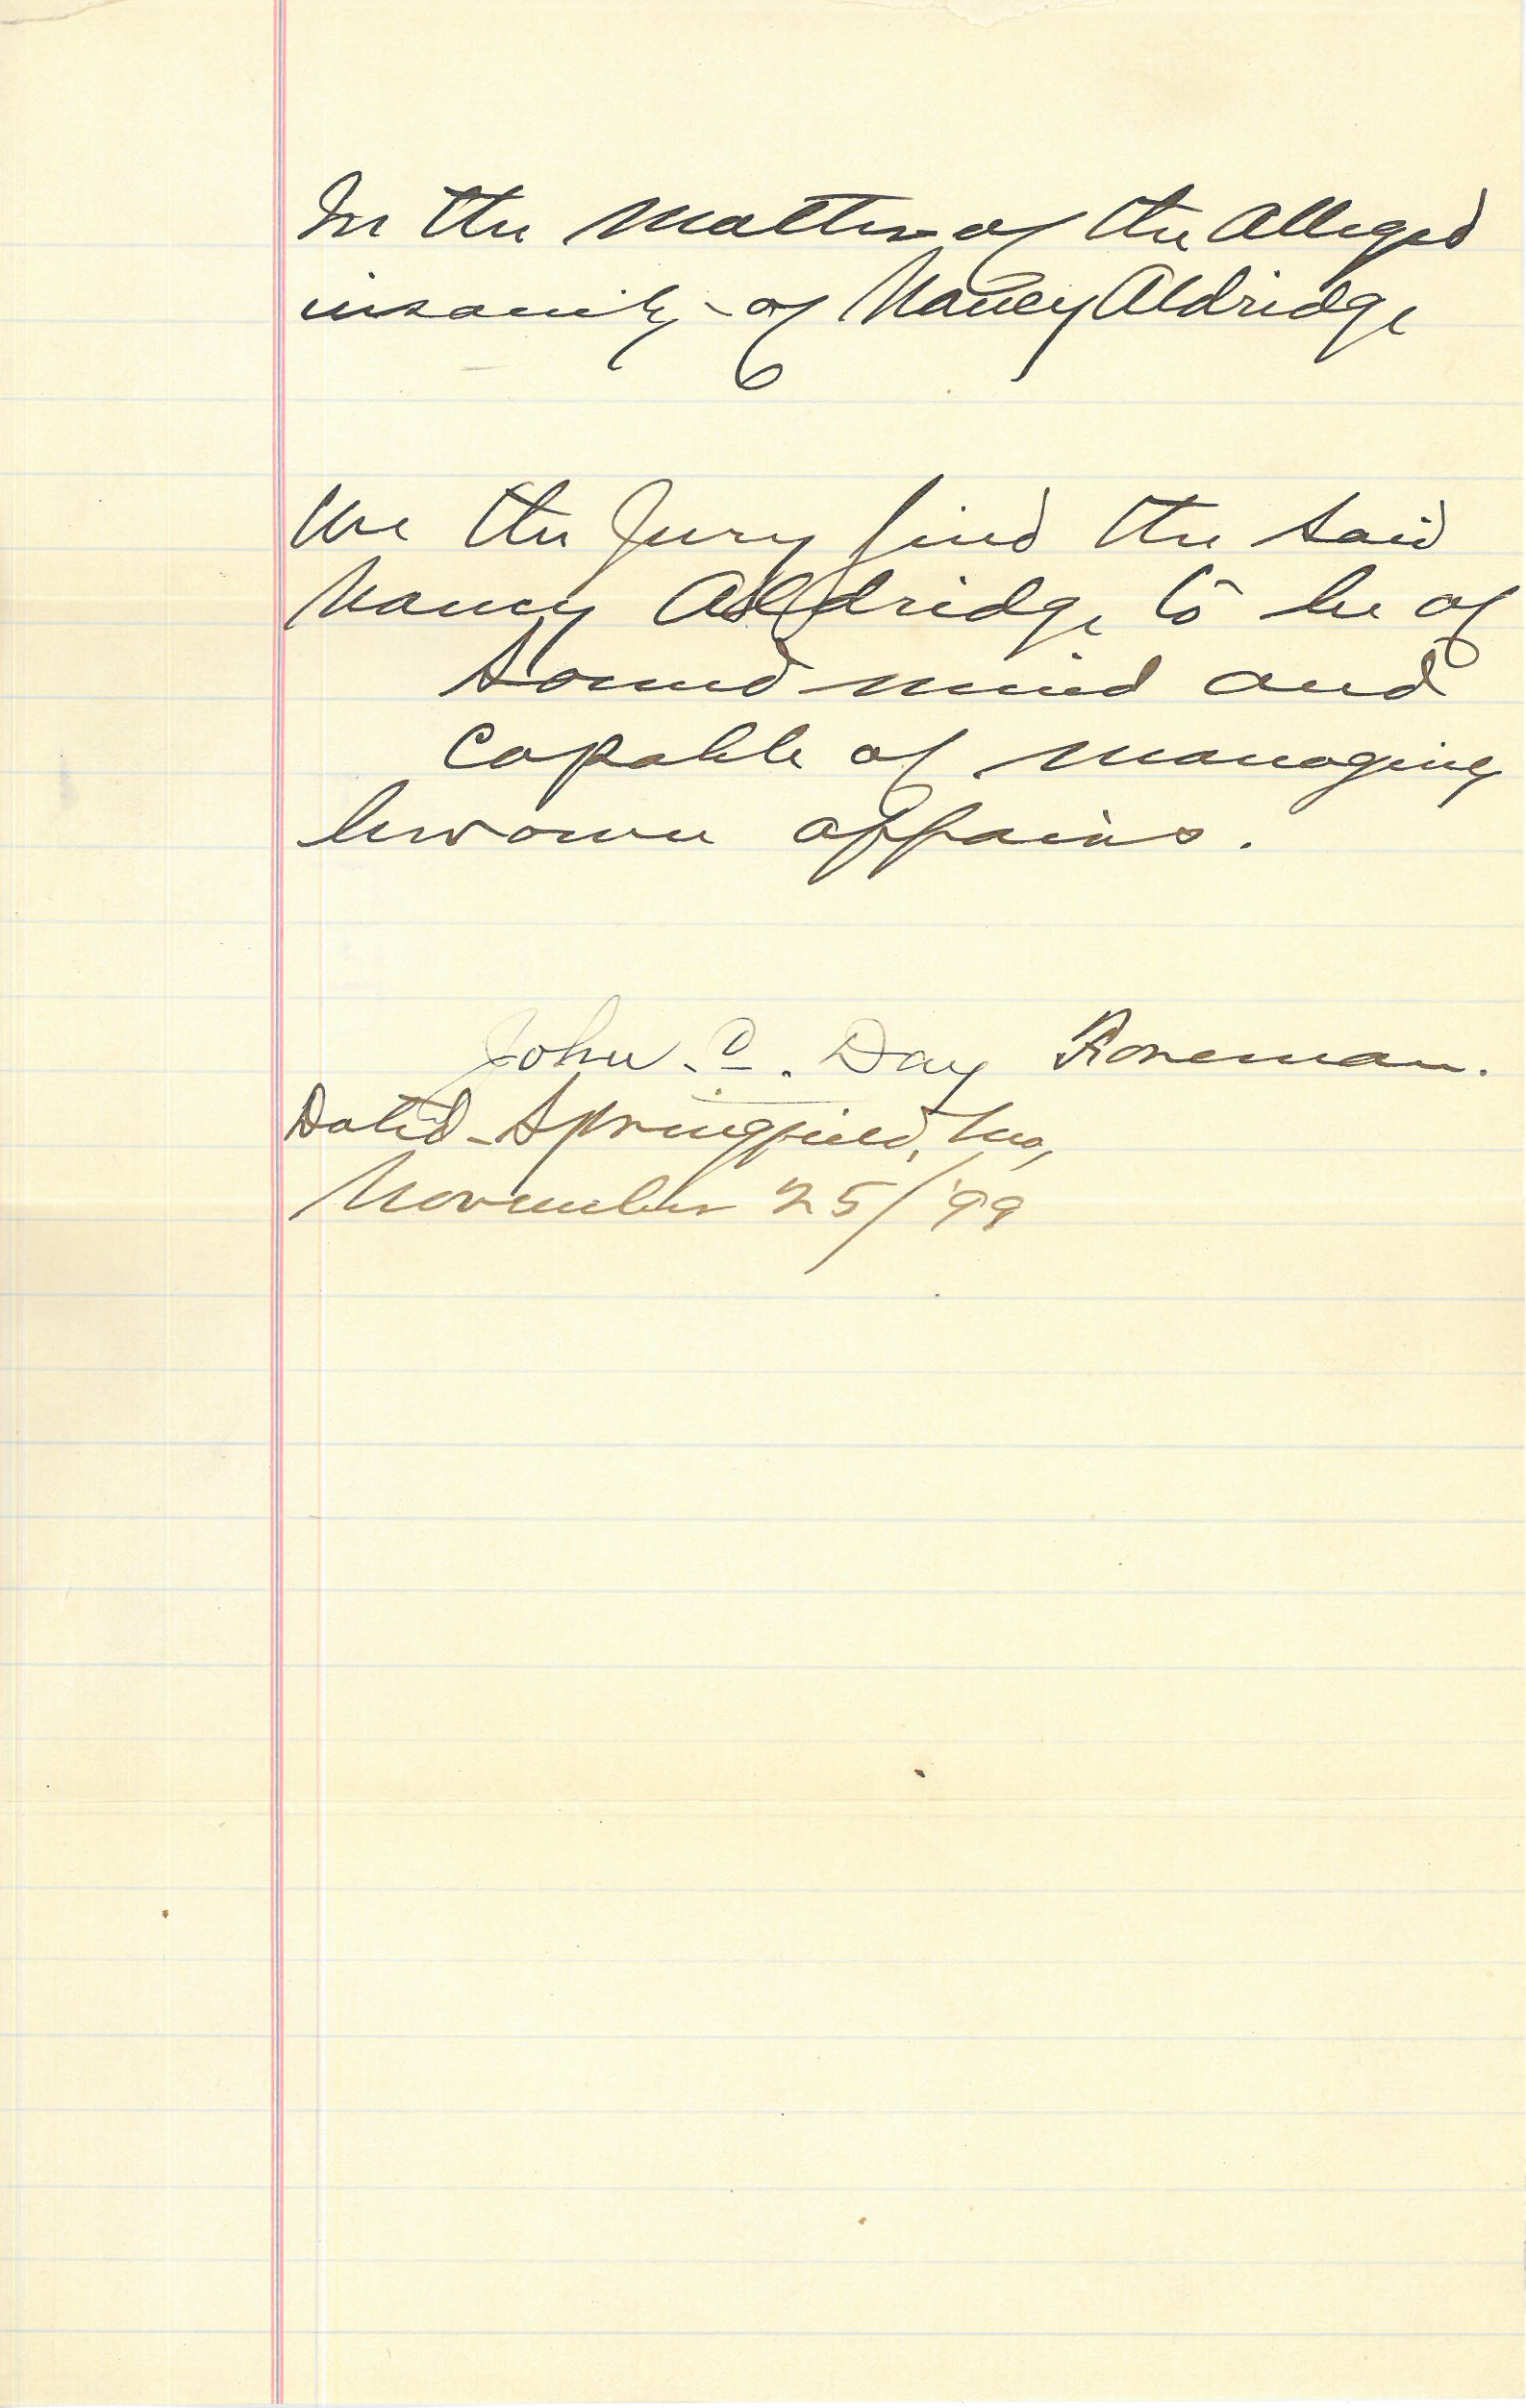 In the Matter of the Alleged
insanity of Nancy Aldridge
We the Jury find the said
Nancy Aldridge to be of
sound mind and
capable of managing
her own affairs.
John C. Day Foreman.
Dated Springfield, Mo,
November 25/'99